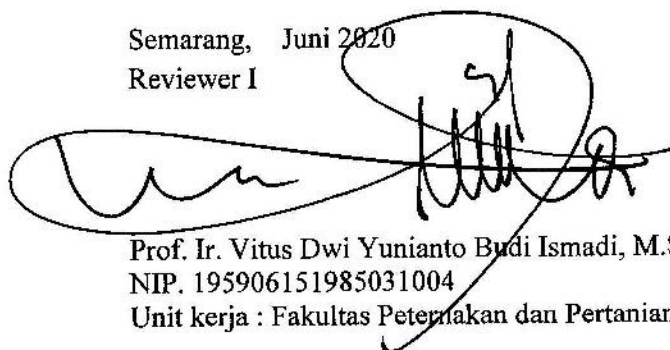 Semarang, Juni 2020
Reviewer I
Prof. Ir. Vitus Dwi Yunianto Budi Ismadi, M.S
NIP. 195906151985031004
Unit kerja : Fakultas Peternakan dan Pertanian